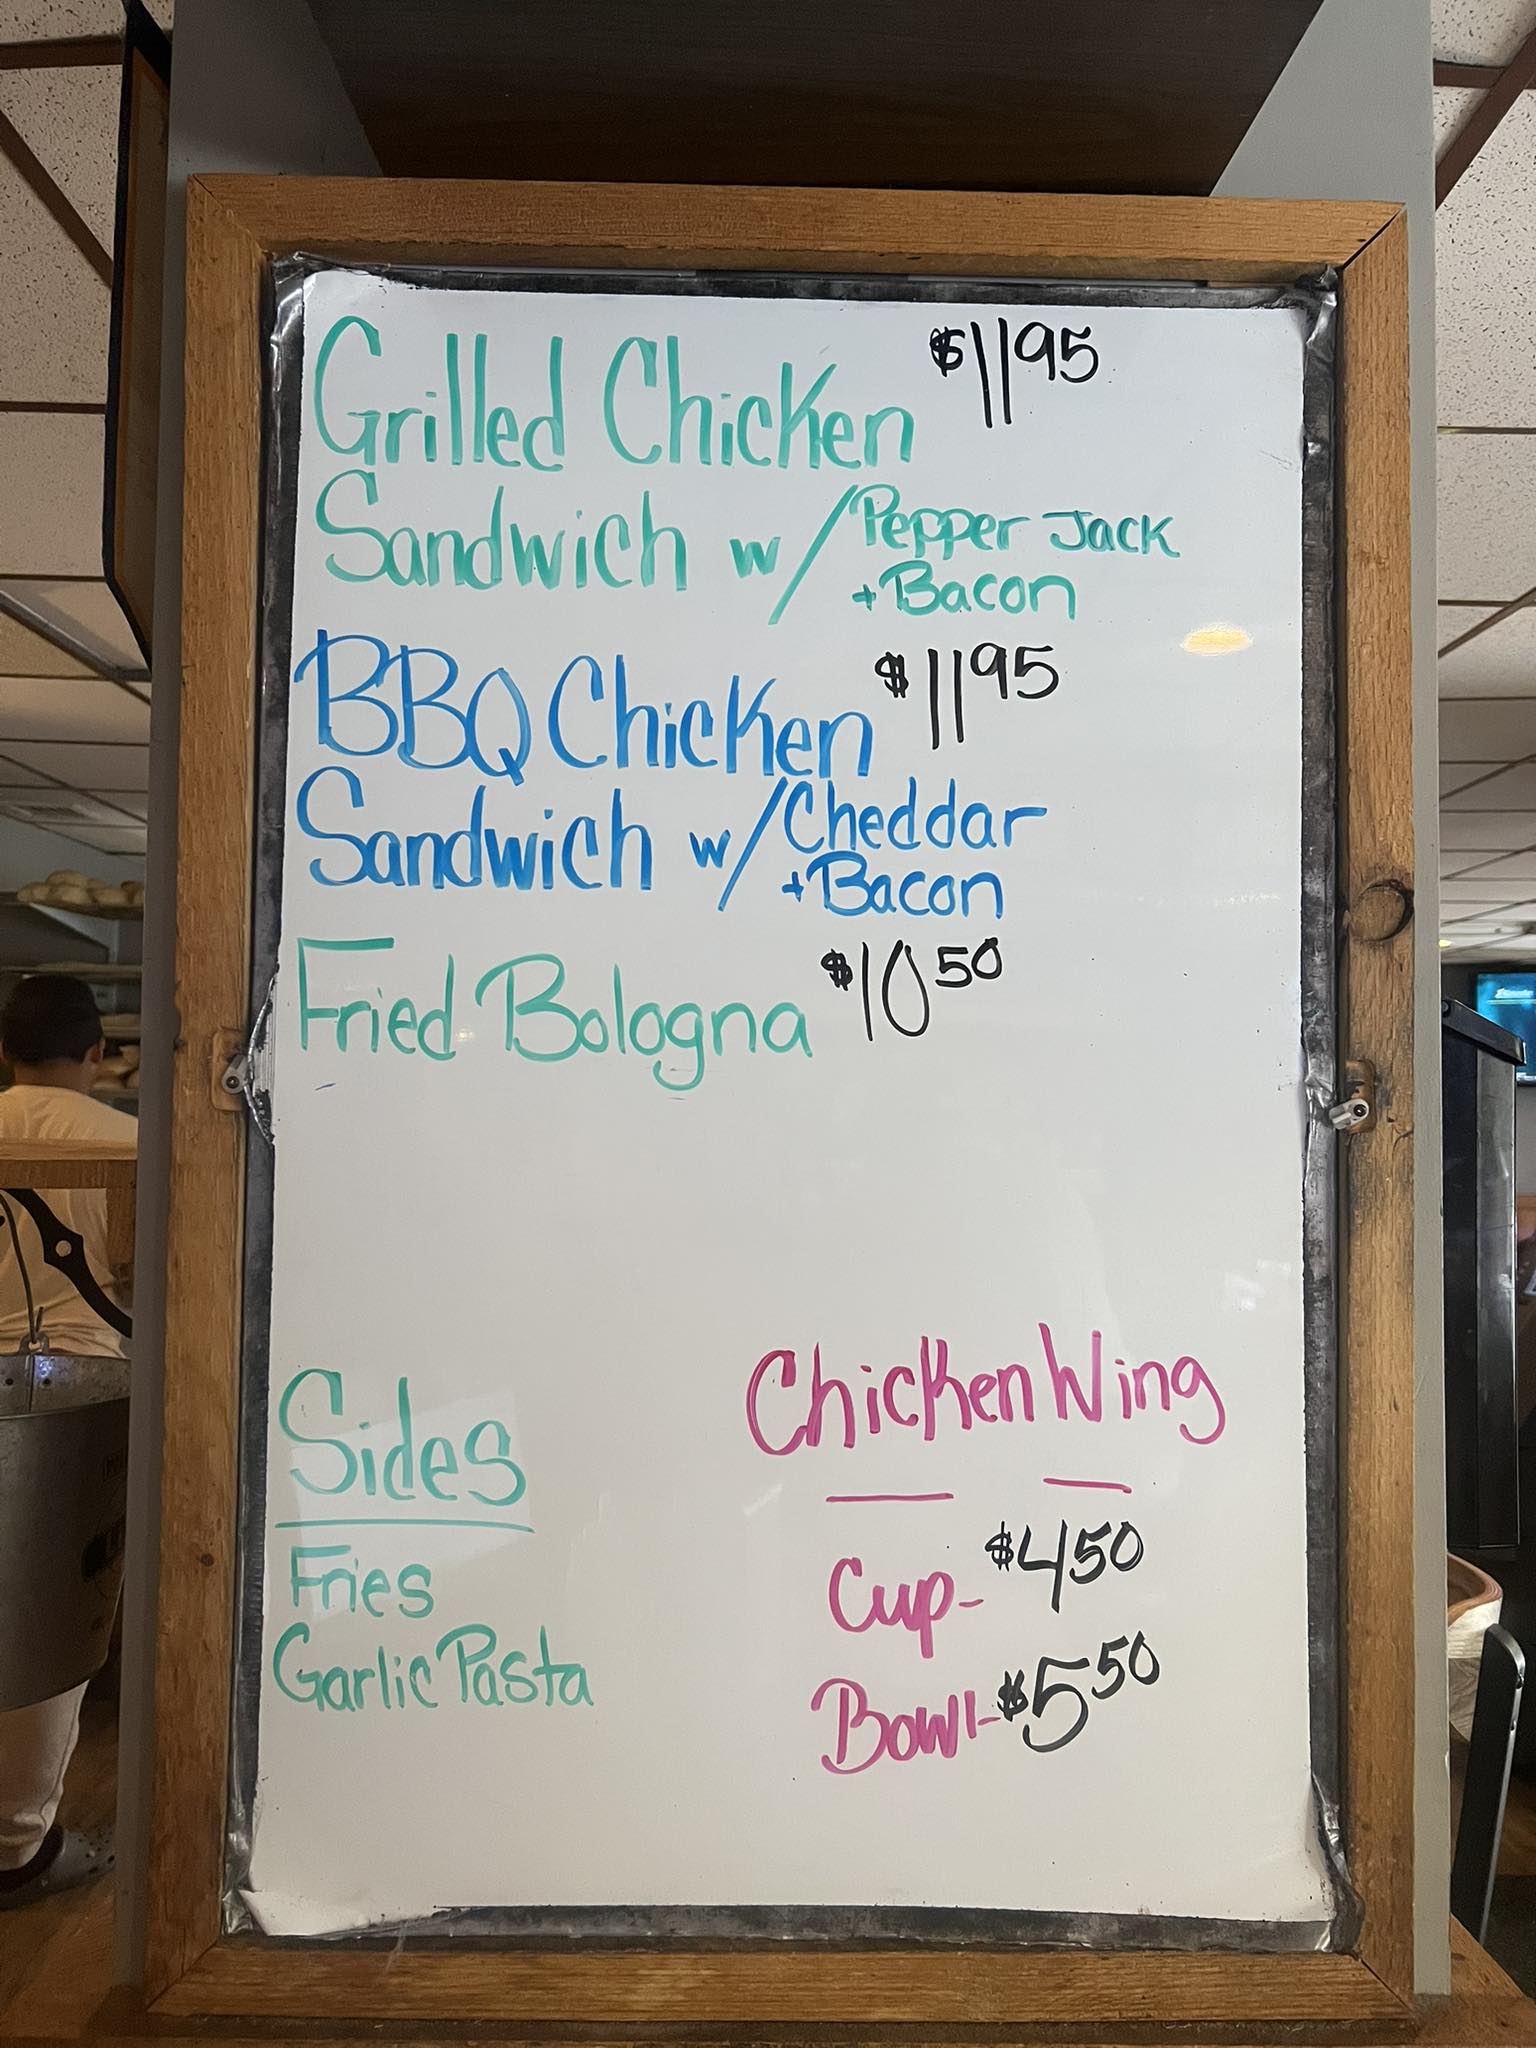 Grilled Chicken $11.95
Sandwich w/ Pepper Jack
+ Bacon
BBQ Chicken $11.95
Sandwich w/ Cheddar
+ Bacon
Fried Bologna $10.50
Sides
Fries
Garlic Pasta
Chicken Wing
Cup - $4.50
Bowl - $5.50